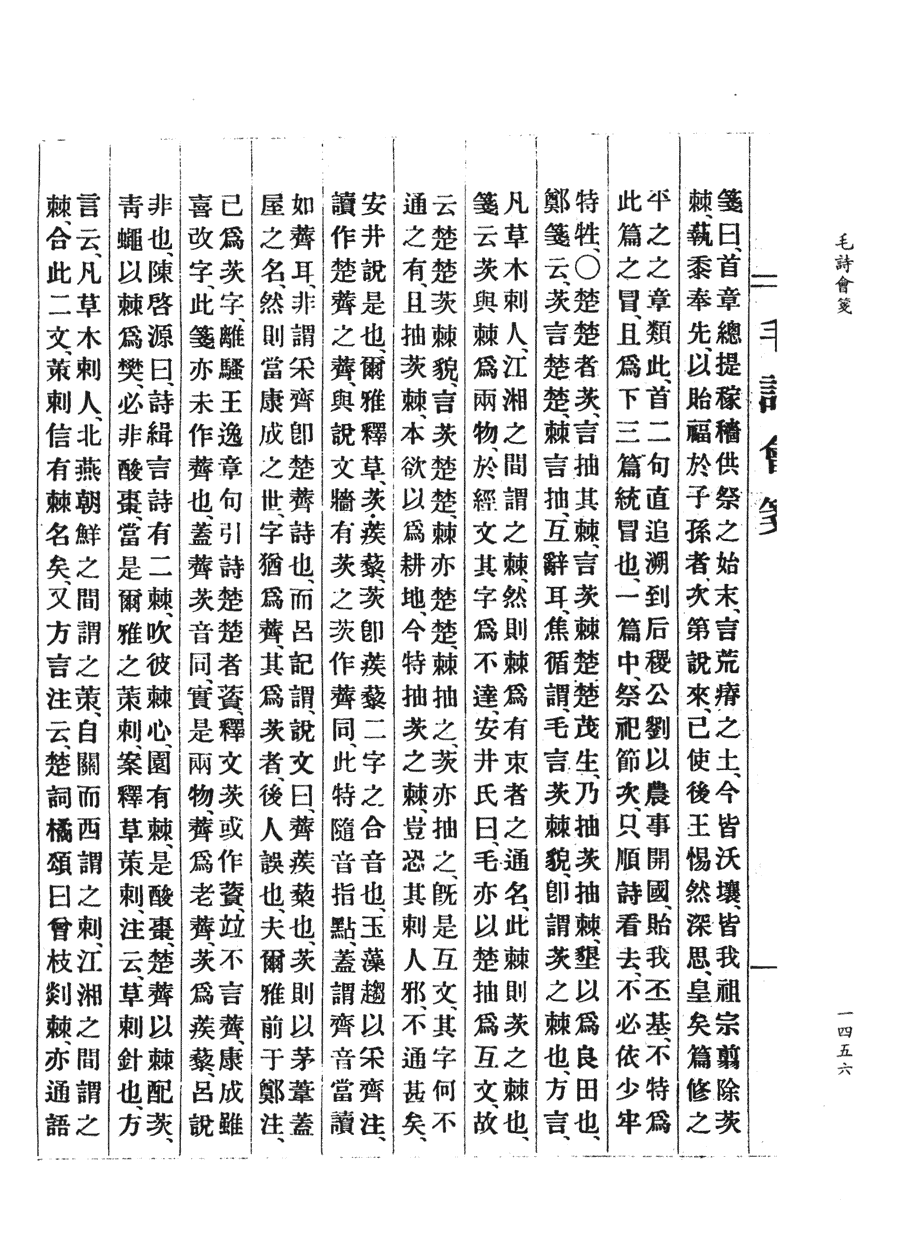 毛詩會箋
一四五六
毛詩會箋
箋曰、首章總提稼穡供祭之始末、言荒瘠之土、今皆沃壤、皆我祖宗翦除茨
棘、蓺黍奉先、以貽福於子孫者、次第說來、已使後王惕然深思、皇矣篇修之
平之之章類此、首二句直追溯到后稷公劉以農事開國、貽我丕基、不特爲
此篇之冒、且爲下三篇統冒也、一篇中、祭祀節次、只順詩看去、不必依少牢
特牲、〇楚楚者茨、言抽其棘、言茨棘楚楚茂生、乃抽茨抽棘、墾以爲良田也、
鄭箋云、茨言楚楚、棘言抽、互辭耳、焦循謂、毛言茨棘貌、卽謂茨之棘也、方言、
凡草木刺人、江湘之間謂之棘、然則棘爲有朿者之通名、此棘則茨之棘也、
箋云茨與棘爲兩物、於經文其字爲不達、安井氏曰、毛亦以楚抽爲互文、故
云楚楚茨棘貌、言茨楚楚、棘亦楚楚、棘抽之、茨亦抽之、旣是互文、其字何不
通之有、且抽茨棘、本欲以爲耕地、今特抽茨之棘、豈恐其刺人邪、不通甚矣、
安井說是也、爾雅釋草、茨、蒺藜、茨卽蒺藜二字之合音也、玉藻趨以采齊注、
讀作楚薺之薺、與說文牆有茨之茨作薺同、此特隨音指點、蓋謂齊音當讀
如薺耳、非謂采齊卽楚薺詩也、而呂記謂、說文曰、薺蒺蔾也、茨則以茅葦蓋
屋之名、然則當康成之世、字猶爲薺、其爲茨者、後人誤也、夫爾雅前于鄭注、
已爲茨字、離騷王逸章句引詩楚楚者薋、釋文茨或作薋、竝不言薺、康成雖
喜改字、此箋亦未作薺也、蓋薺茨音同、實是兩物、薺爲老薺、茨爲蒺藜、呂說
非也、陳啓源曰、詩緝言詩有二棘、吹彼棘心、園有棘、是酸棗、楚薺以棘配茨、
靑蠅以棘爲樊、必非酸棗、當是爾雅之茦刺、案釋草茦刺、注云、草刺針也、方
言云、凡草木刺人、北燕朝鮮之間謂之茦、自關而西謂之刺、江湘之間謂之
棘、合此二文、茦刺信有棘名矣、又方言注云、楚詞橘頌曰曾枝剡棘、亦通語